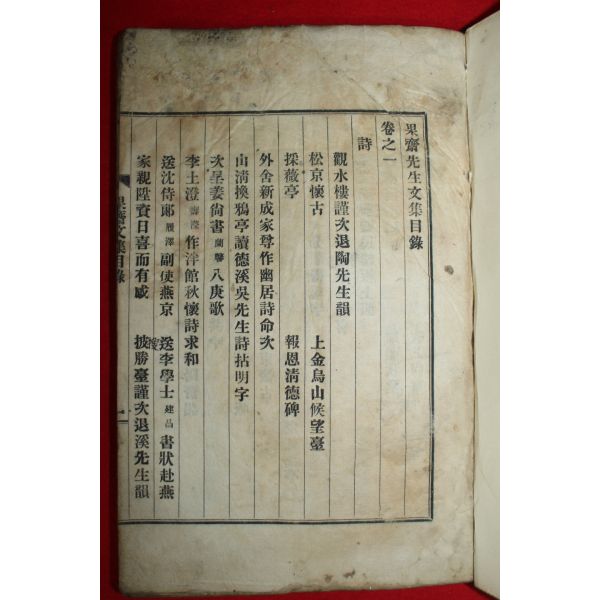 果齋先生文集目錄
卷之一
詩
觀水樓謹次退陶先生韻
松京懷古 上金烏山候望臺
採薇亭 報恩淸德碑
外舍新成家尊作幽居詩命次
山淸換鵝亭讀德溪吳先生詩拈明字
次呈姜尙書 蘭馨 八庚歌
李士澄 壽瀅 作泮館秋懷詩求和
送沈侍郞 履澤 副使燕京 送李學士 建昌 書狀赴燕
家親陞資日喜而有感 披勝臺謹次退溪先生韻
果齋文集目錄 一